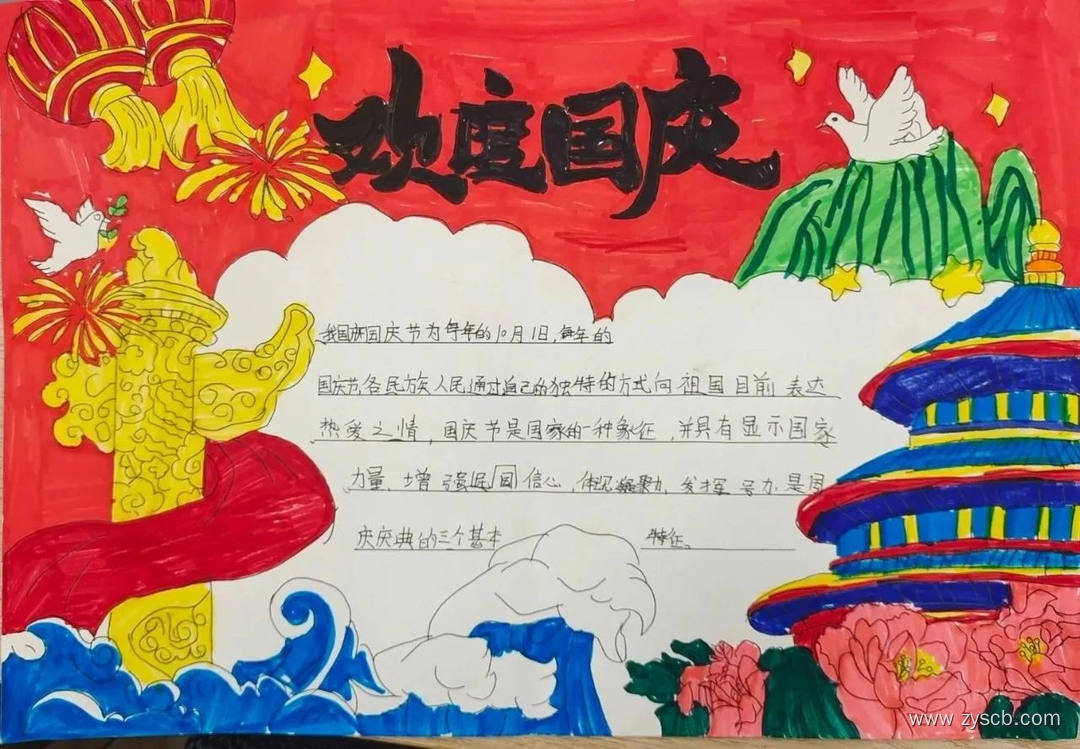 欢度国庆
我国国庆节为每年的10月1日,每年的
国庆节,各民族人民通过自己的独特的方式向祖国目前表达
热爱之情,国庆节是国家的一种象征,并具有显示国家
力量、增强民国信心,体现凝聚力,发挥号力是国
庆庆典的三个基本 特征。
www.zyscb.com